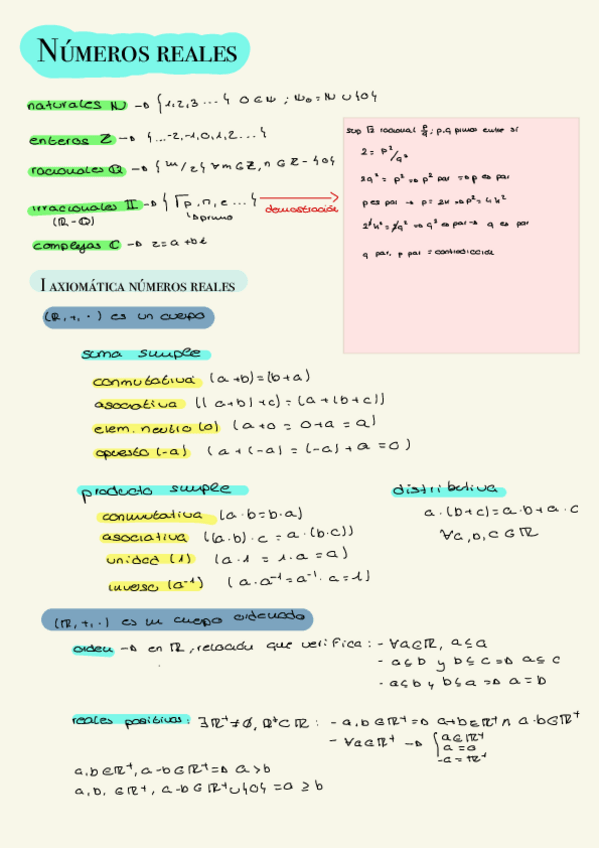 NÚMEROS REALES
naturales ℕ → {1,2,3 ...} 0∈ℕ ; ℕ₀ = ℕ ∪ {0}
enteros ℤ → {...-2,-1,0,1,2...}
racionales ℚ → {m/z} ∀m∈ℤ, n∈ℤ-{0}
irracionales 𝕀 → {√p, π, e ...} demostración
(ℝ-ℚ) ↳ primo
complejos ℂ → z = a+bi
sup √2 racional p/q ; p,q primos entre sí
2 = p²/q²
2q² = p² ⇒ p² par ⇒ p es par
p es par → p = 2k ⇒ p² = 4k²
2k² = q² ⇒ q² es par → q es par
q par, p par = contradicción
I AXIOMÁTICA NÚMEROS REALES
(ℝ,+,·) es un cuerpo
suma simple
conmutativa (a+b)=(b+a)
asociativa ((a+b)+c) = (a+(b+c))
elem. neutro (0) (a+0 = 0+a = a)
opuesto (-a) (a+(-a) = (-a)+a = 0)
producto simple
conmutativa (a·b=b·a)
asociativa ((a·b)·c = a·(b·c))
unidad (1) (a·1 = 1·a = a)
inverso (a⁻¹) (a·a⁻¹ = a⁻¹·a = 1)
distributiva
a·(b+c)=a·b+a·c
∀a,b,c∈ℝ
(ℝ,+,·) es un cuerpo ordenado
orden → en ℝ, relación que verifica: - ∀a∈ℝ, a≤a
- a≤b y b≤c ⇒ a≤c
- a≤b y b≤a ⇒ a=b
reales positivos: ∃ℝ⁺≠∅, ℝ⁺⊂ℝ : - a,b∈ℝ⁺ ⇒ a+b∈ℝ⁺ ∧ a·b∈ℝ⁺
- ∀a∈ℝ⁺ → { a∈ℝ⁺
a=0
-a=ℝ⁺
a,b∈ℝ⁺, a-b∈ℝ⁺ ⇒ a>b
a,b,∈ℝ⁺, a-b∈ℝ⁺∪{0} = a≥b